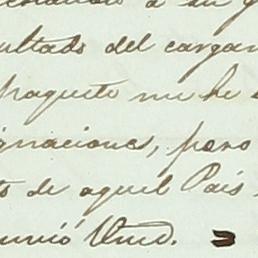 á su
ultado del cargam
paquete me he
gnaciones, pero
to de aquel País
unió Umd.